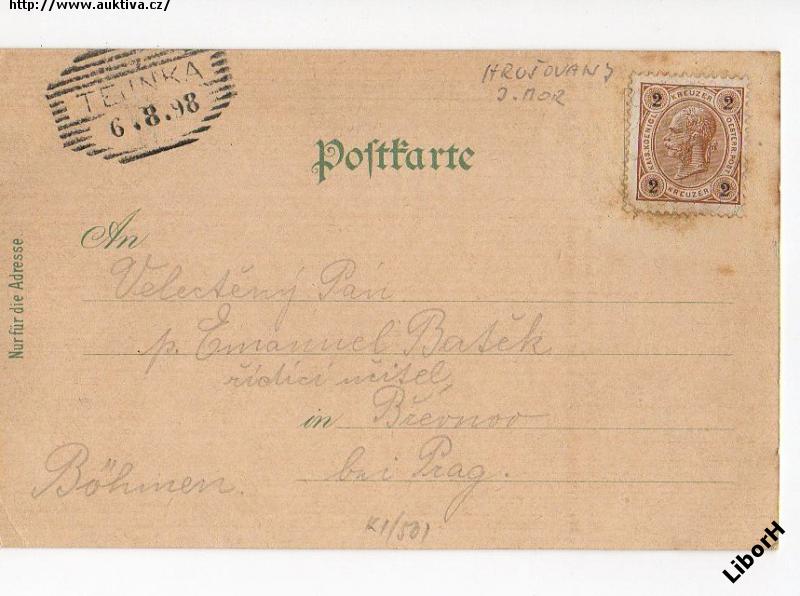 http://www.auktiva.cz/
HRUŠOVANY
J. MOR
6.8.98
2 KREUZER 2
KAIS. KOENIGL. OESTERR. POST
2 KREUZER 2
Postkarte
An
Velectěný Pán
p. Emanuel Batěk
řídící učitel,
in Břevnov
bei Prag.
Böhmen.
Nur für die Adresse
K1/501
LiborH